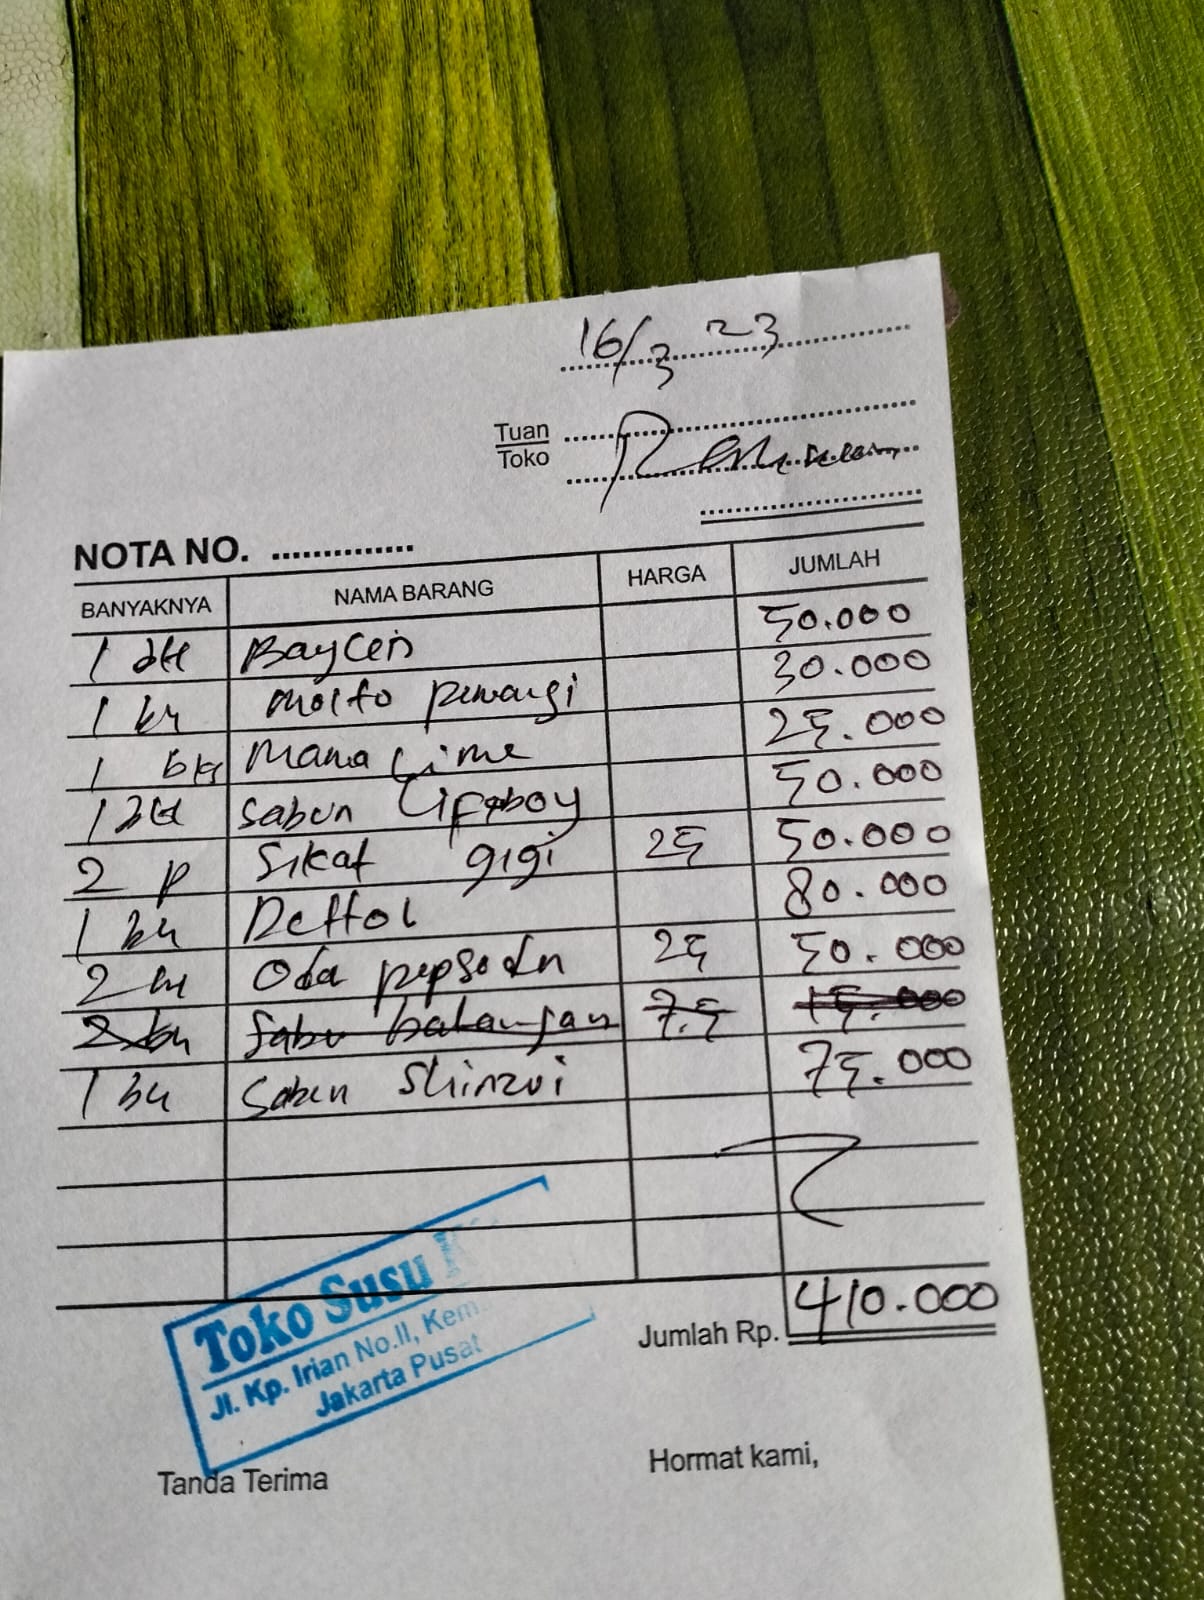 16/3 23
Tuan
Toko
NOTA NO. ..............
BANYAKNYA NAMA BARANG HARGA JUMLAH
1 Baycin 50.000
1 molto pewangi 30.000
1 Mama Lime 25.000
1 sabun Lifeboy 50.000
2 p Sikat gigi 25 50.000
1 Dettol 80.000
2 Oda pepsodn 25 50.000
2 Sabu batangan 7.5 15.000
1 Sabun Shinzui 75.000
Jumlah Rp. 410.000
Toko Susu
Jl. Kp. Irian No.II,
Jakarta Pusat
Tanda Terima Hormat kami,